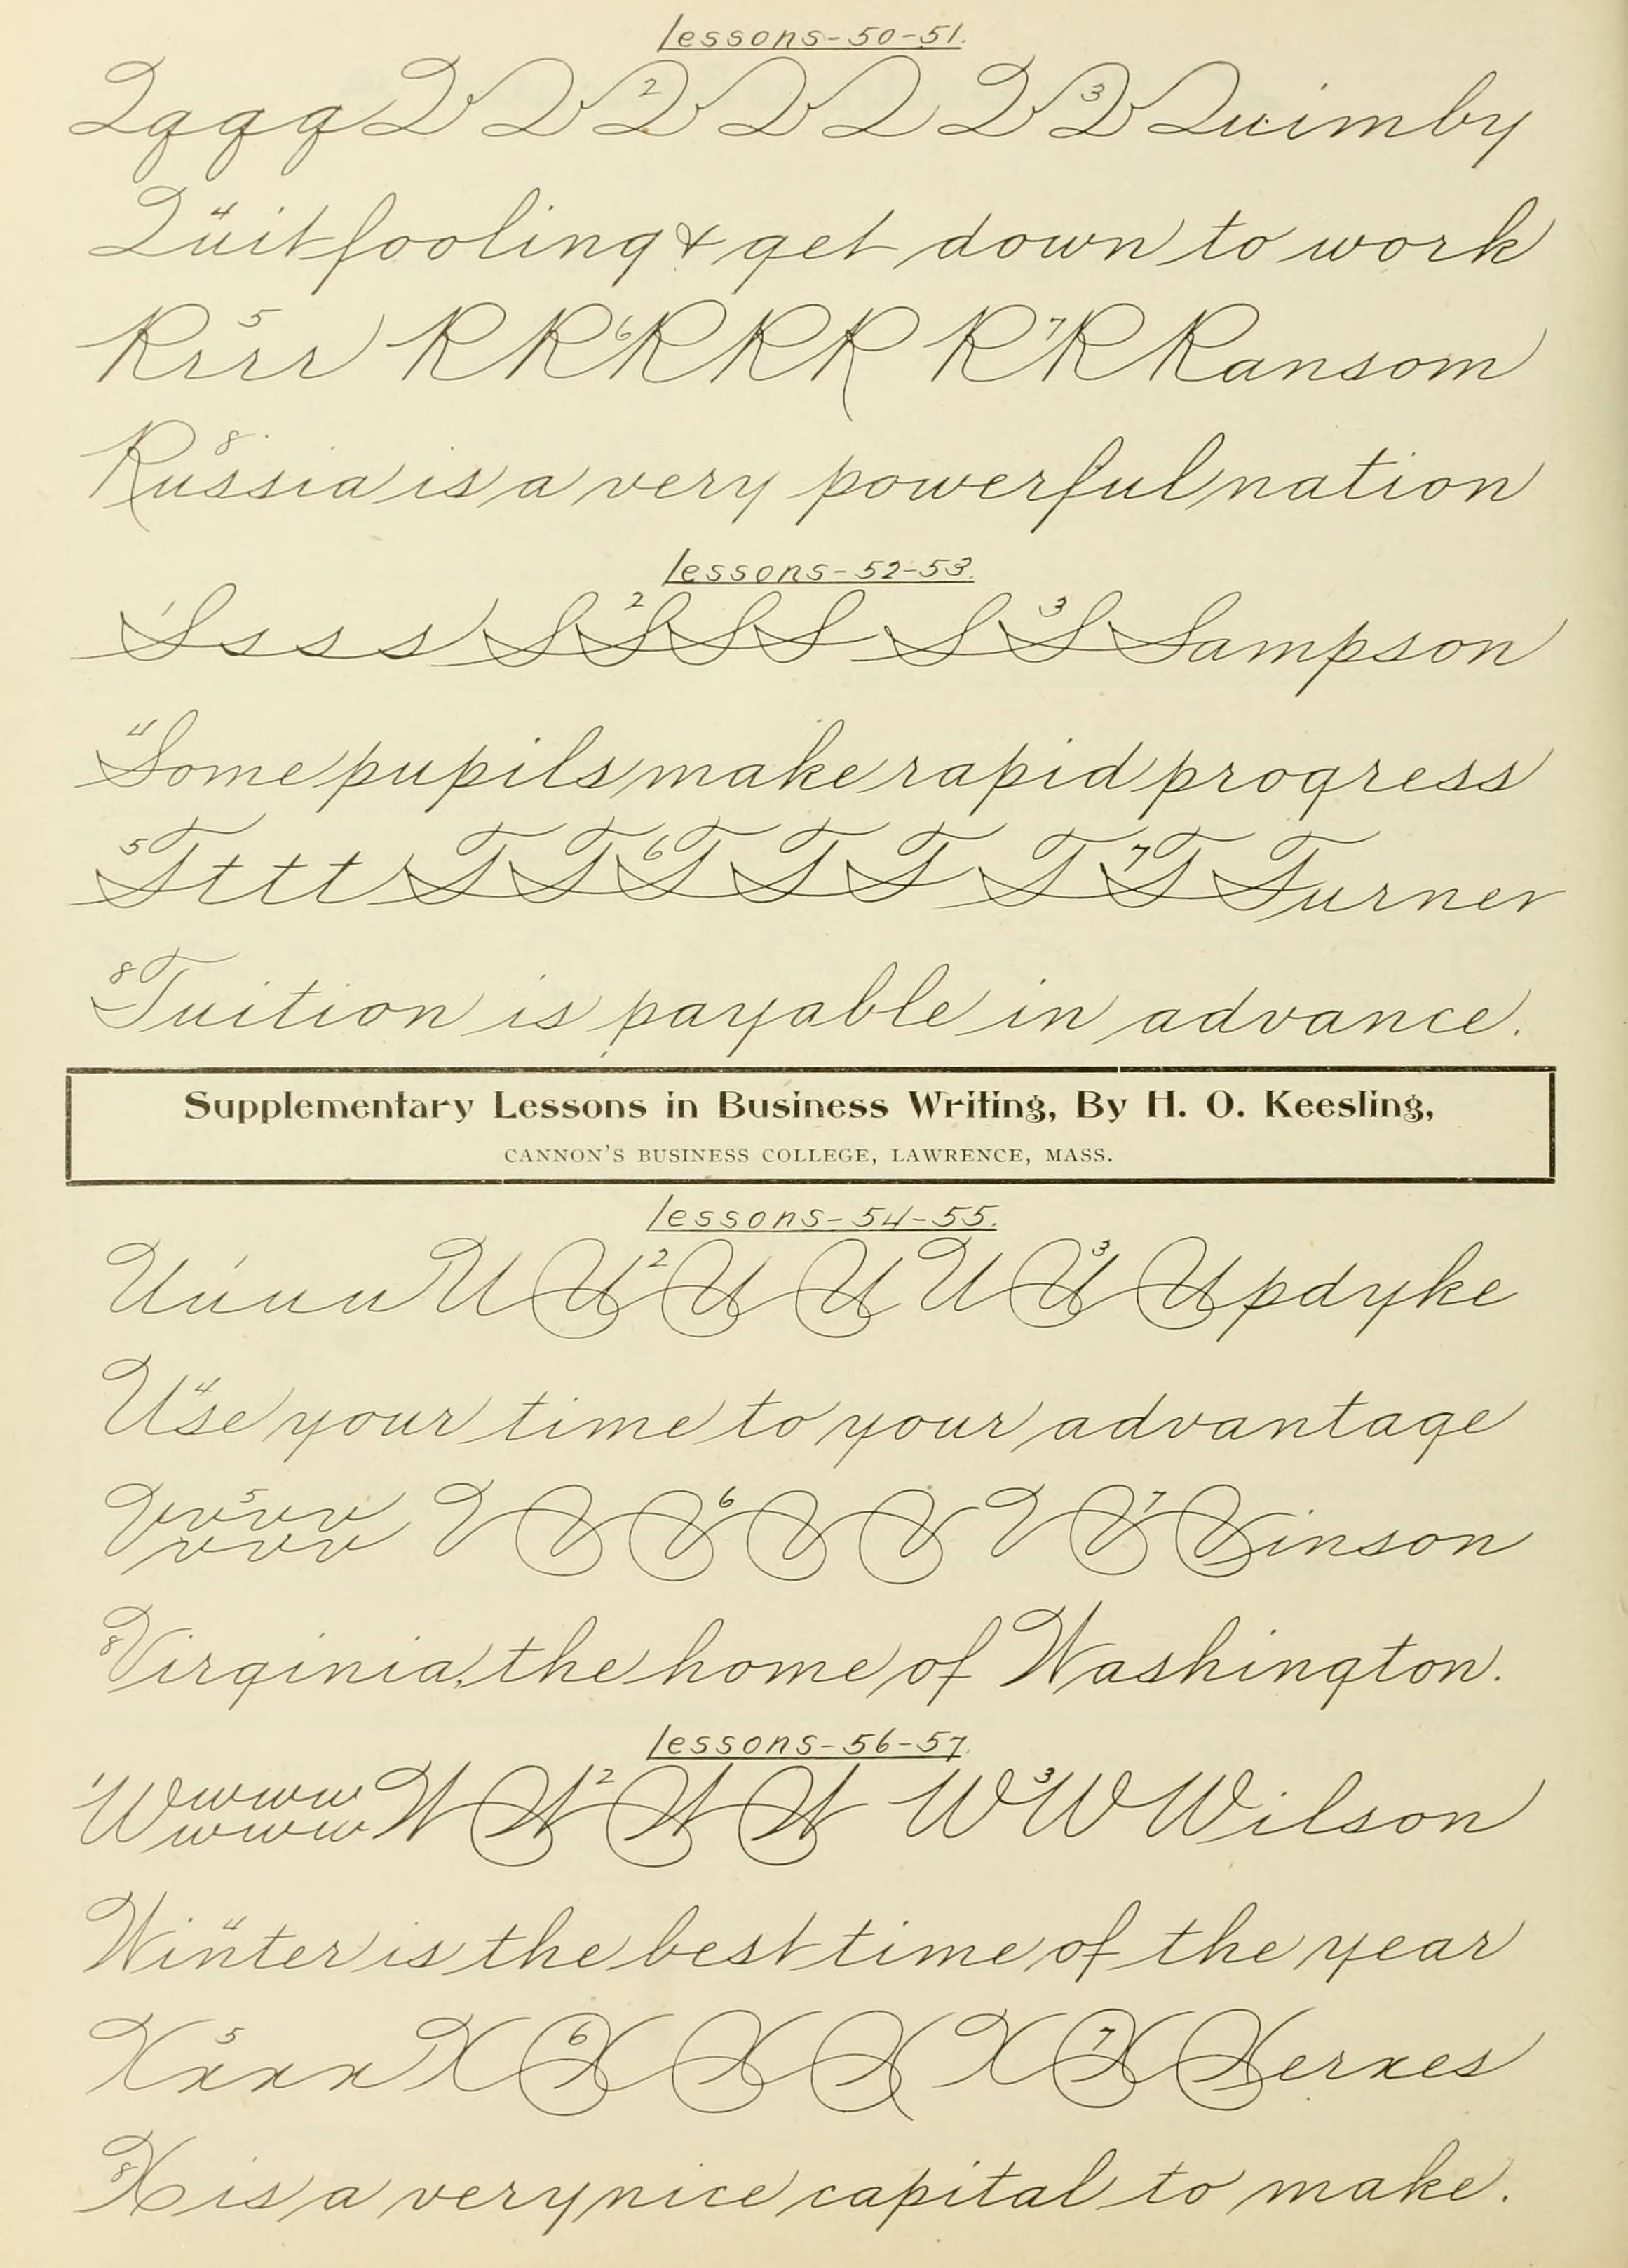 lessons-50-51.
Q q q q Q Q 2 Q Q Q Q 3 Q Quimby
4 Quit fooling & get down to work
R r r r 5 R R 6 R R R R 7 R Ransom
8 Russia is a very powerful nation
lessons-52-53.
1 S s s s S 2 S S S S 3 S Sampson
4 Some pupils make rapid progress
5 T t t t T T 6 T T T T 7 T Turner
8 Tuition is payable in advance.
Supplementary Lessons in Business Writing, By H. O. Keesling,
CANNON'S BUSINESS COLLEGE, LAWRENCE, MASS.
lessons-54-55.
U 1 u u u U U 2 U U U U 3 Updyke
4 Use your time to your advantage
V v 5 v v V V V 6 V V V V 7 Vinson
v v v
8 Virginia, the home of Washington.
lessons-56-57.
1 W w w w W W 2 W W W 3 W Wilson
w w w
4 Winter is the best time of the year
X x 5 x x X X 6 X X X X 7 Xerxes
8 X is a very nice capital to make.